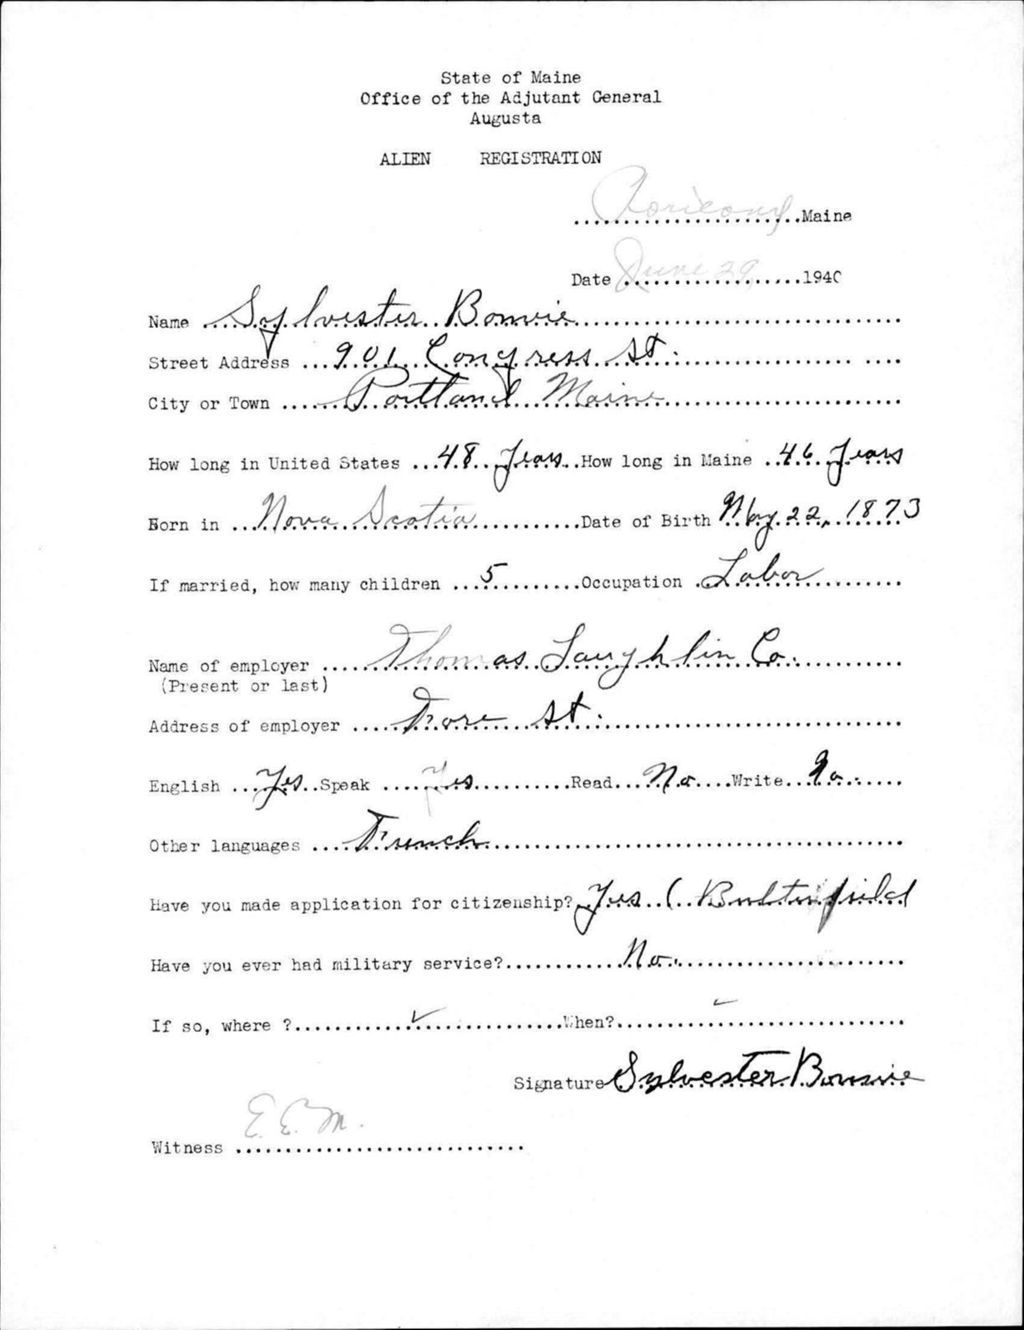 State of Maine
Office of the Adjutant General
Augusta
ALIEN REGISTRATION
.......................Maine
Date June 29, 1940
Name Sylvester Bonvie
Street Address 901 Congress St.
City or Town Portland Maine
How long in United States 48 Years How long in Maine 46 Years
Born in Nova Scotia Date of Birth May 22, 1873
If married, how many children 5 Occupation Labor
Name of employer Thomas Laughlin Co.
(Present or last)
Address of employer Fore St.
English Yes Speak Yes Read No Write No.
Other languages French
Have you made application for citizenship? Yes (
Have you ever had military service? No.
If so, where ? ✓ When? ✓
Signature Sylvester Bonvie
Witness E. E. M.